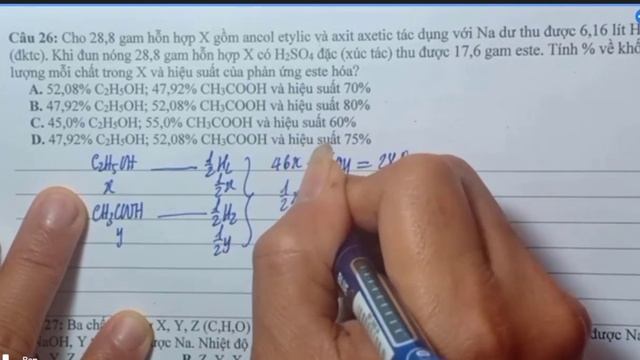 Câu 26: Cho 28,8 gam hỗn hợp X gồm ancol etylic và axit axetic tác dụng với Na dư thu được 6,16 lít H
(đktc). Khi đun nóng 28,8 gam hỗn hợp X có H₂SO₄ đặc (xúc tác) thu được 17,6 gam este. Tính % về khố
lượng mỗi chất trong X và hiệu suất của phản ứng este hóa?
A. 52,08% C₂H₅OH; 47,92% CH₃COOH và hiệu suất 70%
B. 47,92% C₂H₅OH; 52,08% CH₃COOH và hiệu suất 80%
C. 45,0% C₂H₅OH; 55,0% CH₃COOH và hiệu suất 60%
D. 47,92% C₂H₅OH; 52,08% CH₃COOH và hiệu suất 75%
C₂H₅OH — ½H₂ 46x y =
x ½x ½
CH₃COOH — ½H₂
y ½y
27: Ba ch X, Y, Z (C,H,O) được Na
OH, Y ược Na. Nhiệt độ